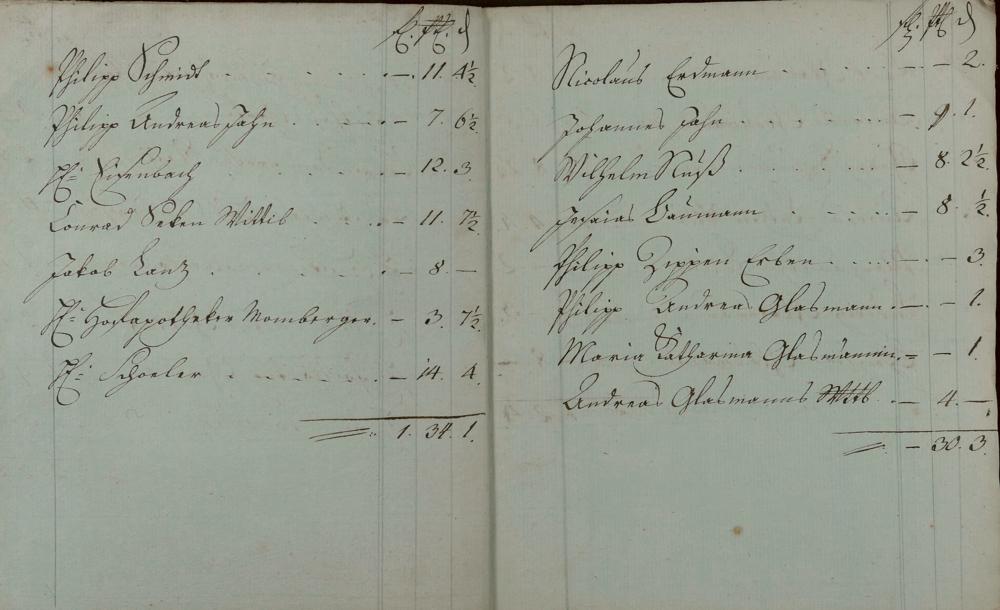 fl. ß. d
Philipp Schmidt . . . . . — 11. 4½
Philipp Andreas Jahn . . . . — 7. 6½
H: Eisenbach . . . . — 12. 3.
Conrad Wittib . . . — 11. 7½
Jakob Lantz . . . . . — 8. —
H: Hofapotheker Momberger. — 3. 7½
H: Schoeler . . . . . — 14. 4.
1. 34. 1.
fl. ß. d
Nicolaus Erdmann . . . . — — 2.
Johannes Jahn . . . . — 9. 1.
Wilhelm Nuß . . . . . — 8. 2½
Baumann . . . . — 8. ½
Philipp Zippen Erben . . . . — — 3.
Philipp Andreas Glasmann . — — 1.
Maria Catharina Glasmännin. — — 1.
Andreas Glasmanns Wttb . — 4. —
— 30. 3.